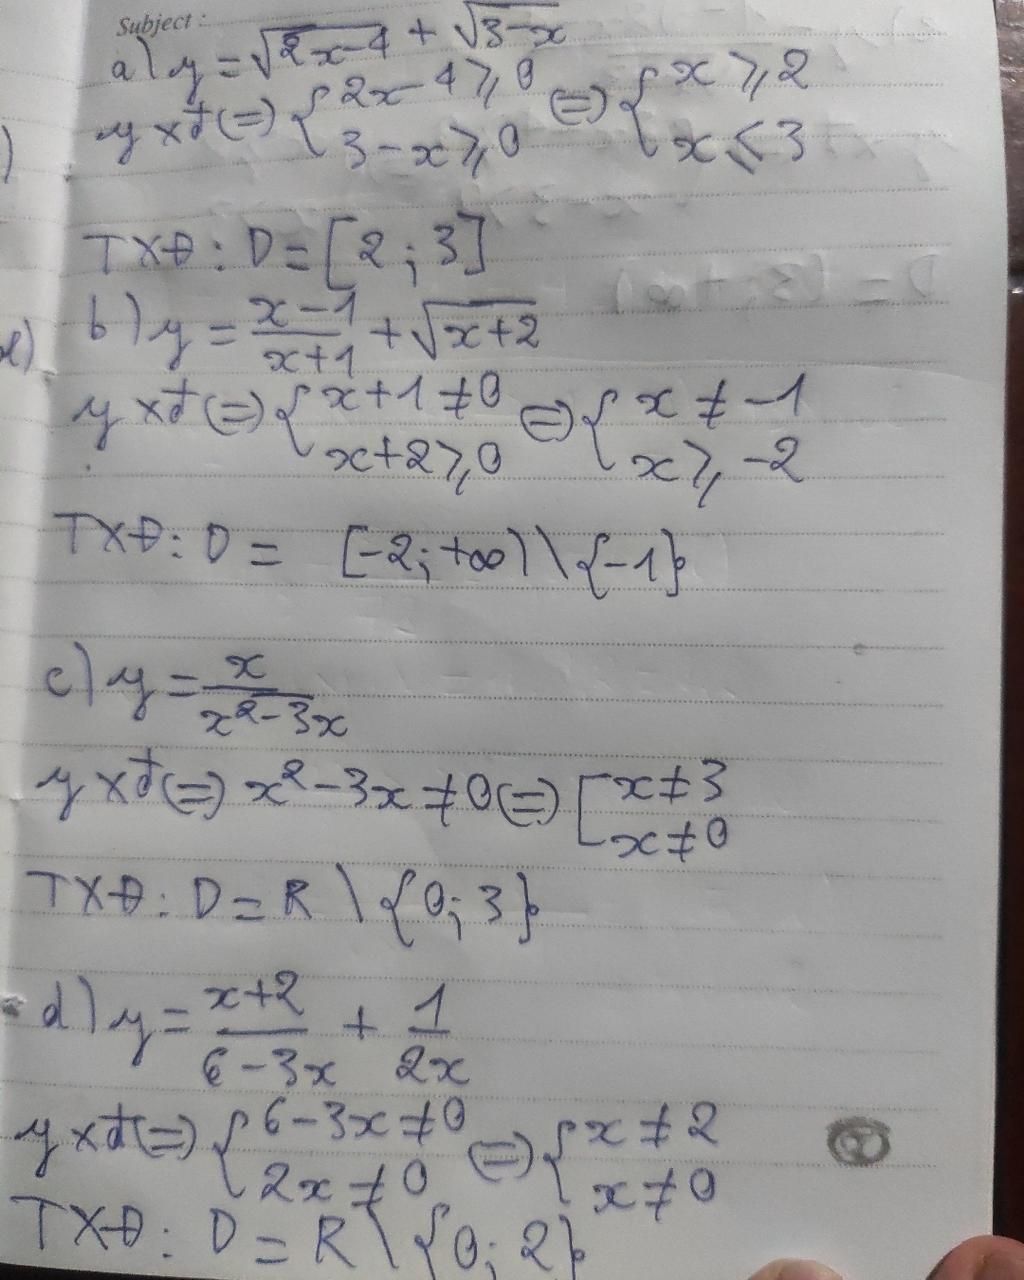 Subject :
a) y = √(2x-4) + √(3-x)
y xđ (=) { 2x-4 ⩾ 0 (=) { x ⩾ 2
3-x ⩾ 0 x ⩽ 3
TXĐ : D = [2 ; 3]
b) y = (x-1)/(x+1) + √(x+2)
y xđ (=) { x+1 ≠ 0 (=) { x ≠ -1
x+2 ⩾ 0 x ⩾ -2
TXĐ : D = [-2; +∞) \ {-1}
c) y = x/(x²-3x)
y xđ (=) x²-3x ≠ 0 (=) [ x ≠ 3
x ≠ 0
TXĐ : D = R \ {0; 3}
d) y = (x+2)/(6-3x) + 1/(2x)
y xđ (=) { 6-3x ≠ 0 (=) { x ≠ 2
2x ≠ 0 x ≠ 0
TXĐ : D = R \ {0; 2}